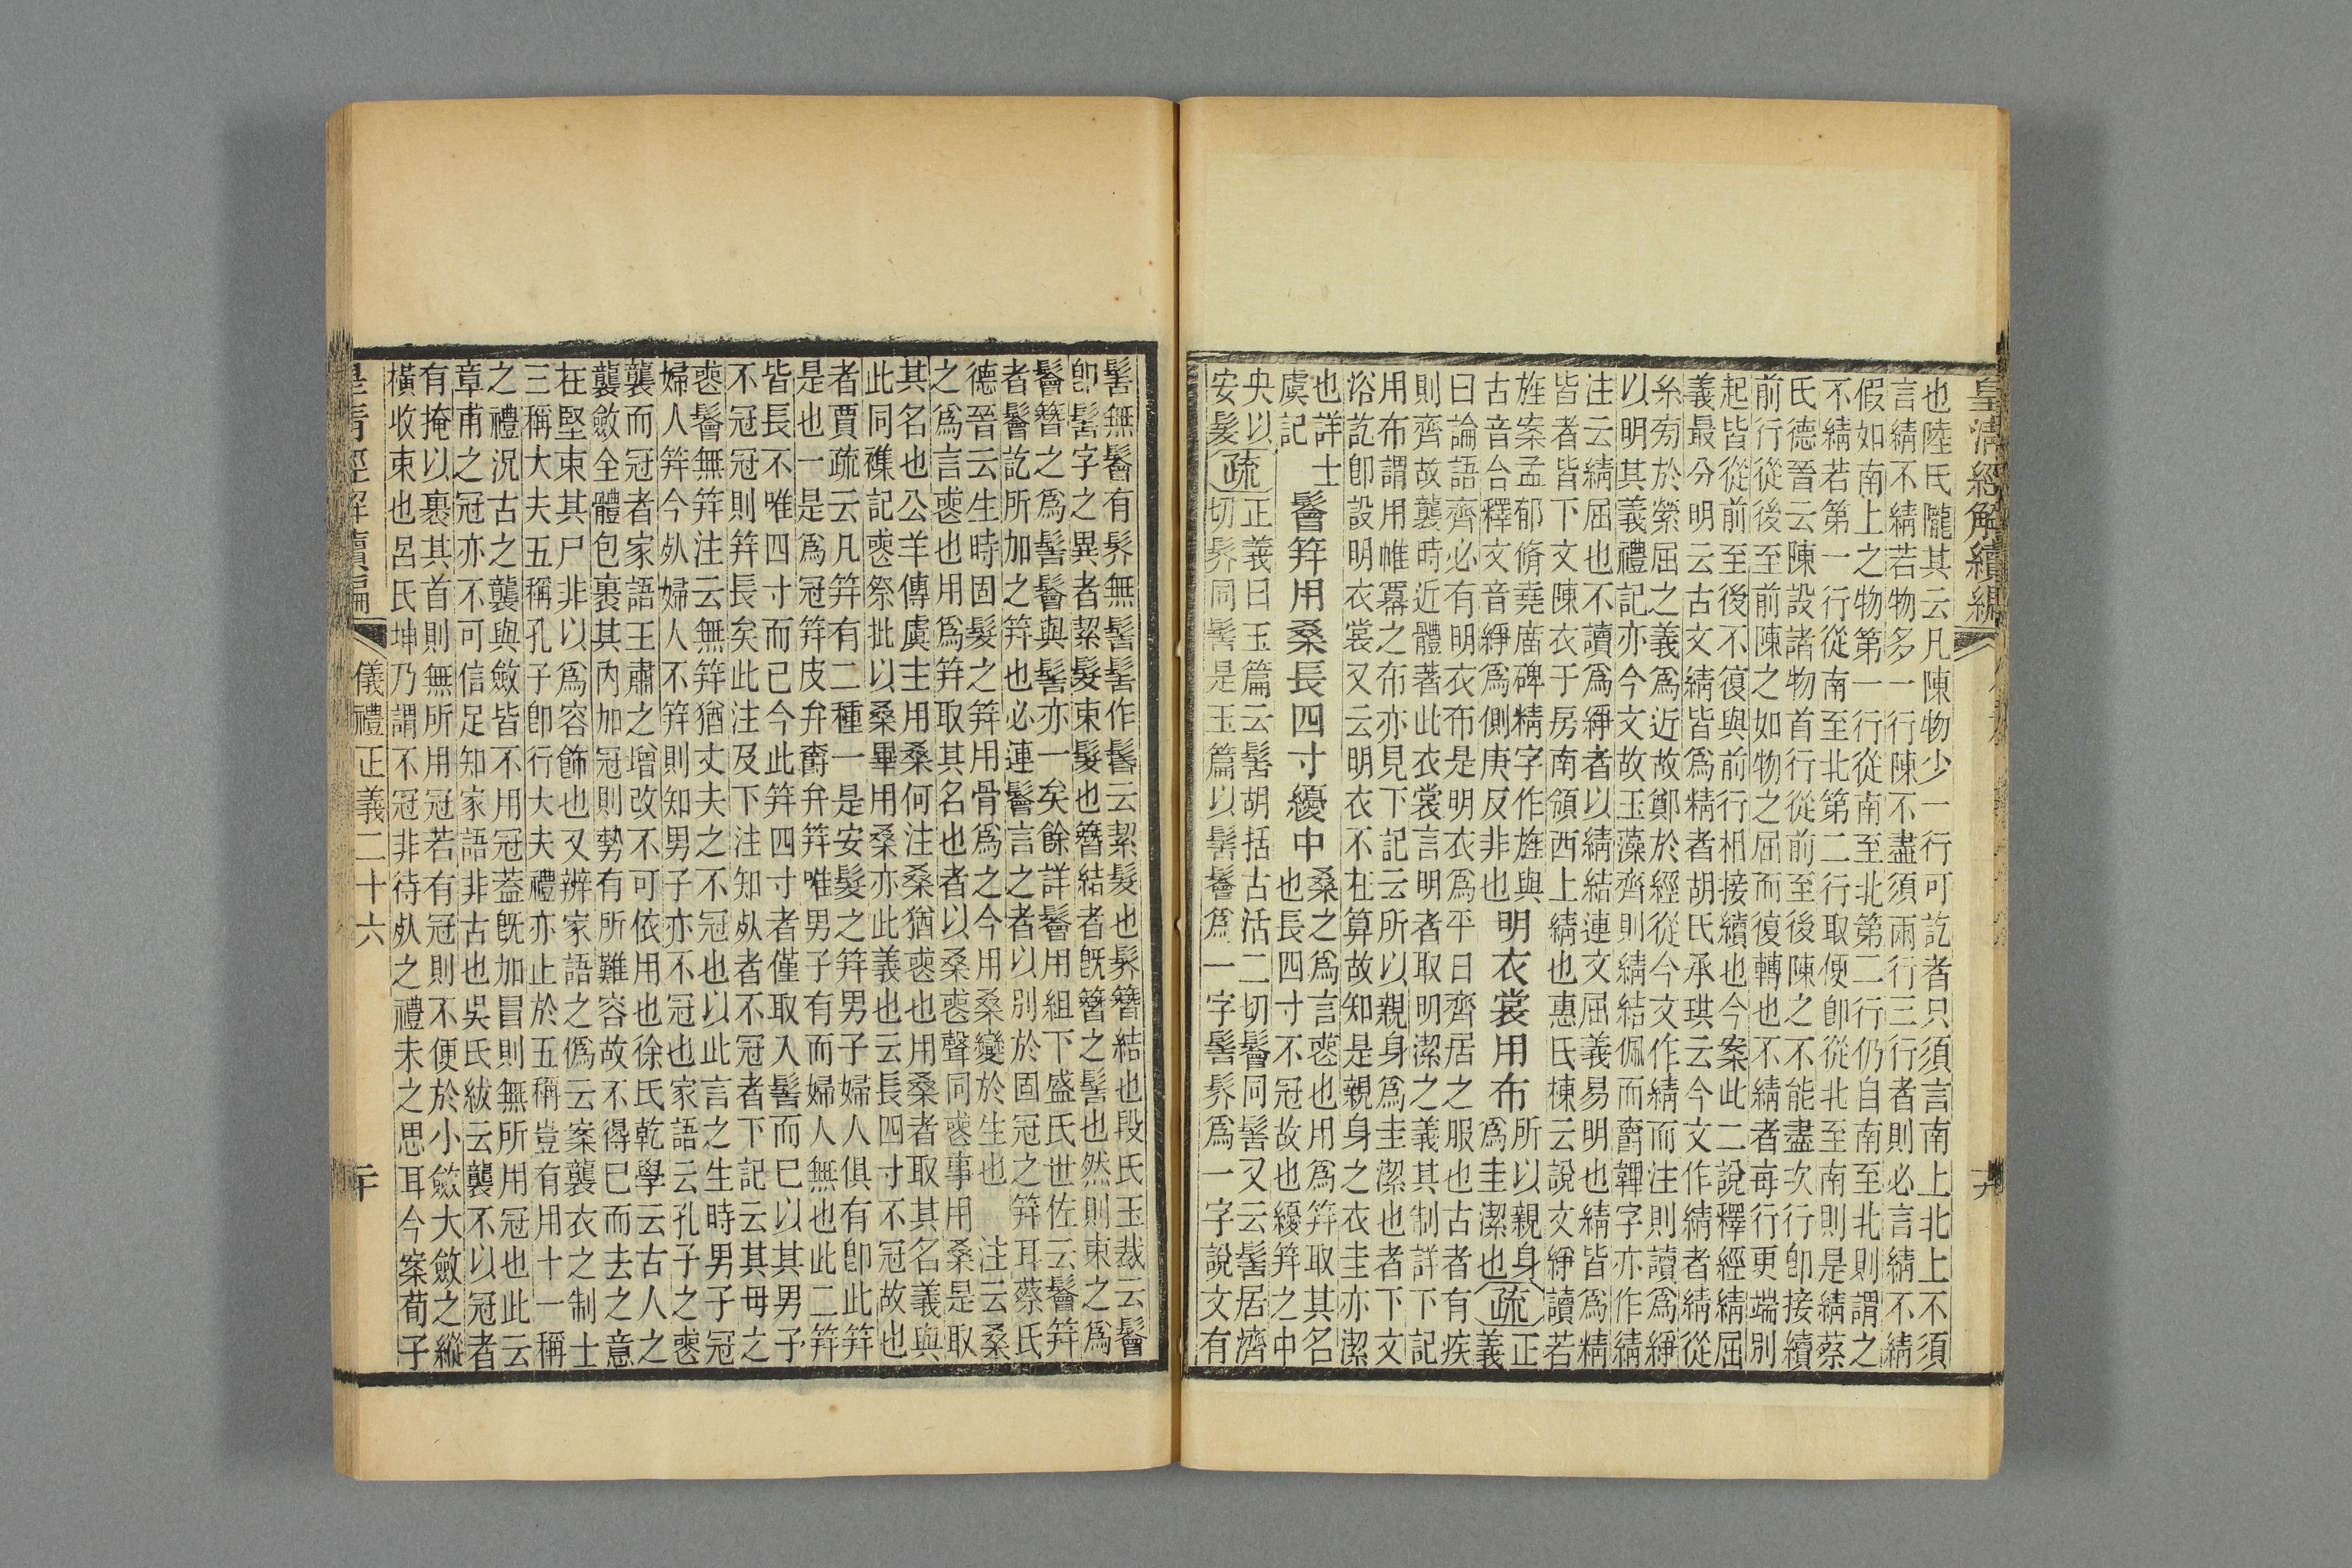 皇清經解續編
也陸氏隴其云凡陳物少一行可訖者只須言南上北上不須
言綪不綪若物多一行陳不盡須兩行三行者則必言綪不綪
假如南上之物第一行從南至北第二行仍自南至北則謂之
不綪若第一行從南至北第二行取便卽從北至南則是綪蔡
氏德晉云陳設諸物首行從前至後陳之不能盡次行卽接續
前行從後至前陳之如物之屈而復轉也不綪者每行更端別
起皆從前至後不復與前行相接續也今案此二說釋經綪屈
義最分明云古文綪皆爲精者胡氏承珙云今文作綪者綪從
糸旁於縈屈之義爲近故鄭於經從今文作綪而注則讀爲䋫
以明其義禮記亦今文故玉藻齊則綪結佩而爵韠字亦作綪
注云綪屈也不讀爲䋫者以綪結連文屈義易明也綪皆爲精
皆者皆下文陳衣于房南領西上綪也惠氏棟云說文䋫讀若
旌案孟郁脩堯廟碑精字作旌與
古音合釋文音䋫爲側庚反非也
明衣裳用布
所以親身
爲圭潔也
疏
正
義
曰論語齊必有明衣布是明衣爲平日齊居之服也古者有疾
則齊故襲時近體著此衣裳言明者取明潔之義其制詳下記
用布謂用帷冪之布亦見下記云所以親身爲圭潔也者下文
浴訖卽設明衣裳又云明衣不在算故知是親身之衣圭亦潔
也詳士
虞記
鬠笄用桑長四寸纋中
桑之爲言喪也用爲笄取其名
也長四寸不冠故也纋笄之中
央以
安髮
疏
正義曰玉篇云髺胡括古活二切鬠同髺又云髻居濟
切䯰同髻是玉篇以髺鬠爲一字髻䯰爲一字說文有
十九
髺無鬠有䯰無髻髺作髺云絜髮也䯰簪結也段氏玉裁云鬠
卽髺字之異者絜髮束髮也簪結者旣簪之髻也然則束之爲
鬠簪之爲髻鬠與髻亦一矣餘詳鬠用組下盛氏世佐云鬠笄
者鬠訖所加之笄也必連鬠言之者以別於固冠之笄耳蔡氏
德晉云生時固髮之笄用骨爲之今用桑變於生也 注云桑
之爲言喪也用爲笄取其名也者以桑喪聲同喪事用桑是取
其名也公羊傳虞主用桑何注桑猶喪也用桑者取其名義與
此同襍記喪祭枇以桑畢用桑亦此義也云長四寸不冠故也
者賈疏云凡笄有二種一是安髮之笄男子婦人俱有卽此笄
是也一是爲冠笄皮弁爵弁笄唯男子有而婦人無也此二笄
皆長不唯四寸而已今此笄四寸者僅取入髻而已以其男子
不冠冠則笄長矣此注及下注知死者不冠者下記云其母之
喪鬠無笄注云無笄猶丈夫之不冠也以此言之生時男子冠
婦人笄今死婦人不笄則知男子亦不冠也家語云孔子之喪
襲而冠者家語王肅之增改不可依用也徐氏乾學云古人之
襲斂全體包裹其內加冠則勢有所難容故不得已而去之意
在堅束其尸非以爲容飾也又辨家語之僞云案襲衣之制士
三稱大夫五稱孔子卽行大夫禮亦止於五稱豈有用十一稱
之禮況古之襲與斂皆不用冠葢旣加冒則無所用冠也此云
章甫之冠亦不可信足知家語非古也吳氏紱云襲不以冠者
有掩以裹其首則無所用冠若有冠則不便於小斂大斂之縱
橫收束也呂氏坤乃謂不冠非待死之禮未之思耳今案荀子
皇清經解續編
儀禮正義二十六
二十